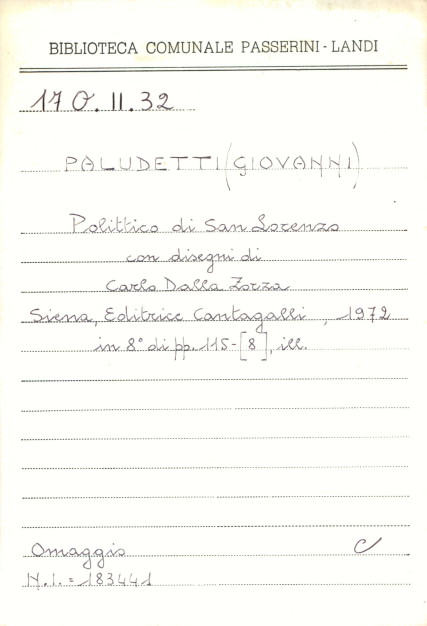 BIBLIOTECA COMUNALE PASSERINI-LANDI
17 O. II. 32
PALUDETTI (GIOVANNI)
Polittico di San Lorenzo
con disegni di
Carlo Dalla Zorza
Siena, Editrice Cantagalli, 1972
in 8° di pp. 115-[8], ill.
Omaggio C
N.I. = 183441